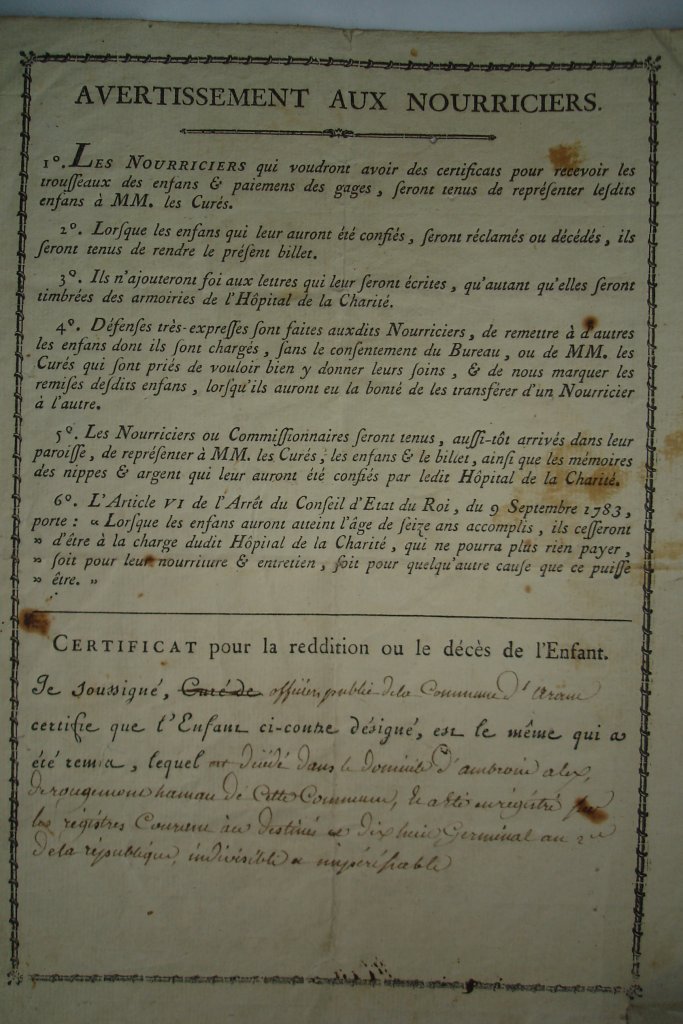 AVERTISSEMENT AUX NOURRICIERS.
1°. LES NOURRICIERS qui voudront avoir des certificats pour recevoir les
trouſſeaux des enfans & paiemens des gages, ſeront tenus de repréſenter leſdits
enfans à MM. les Curés.
2°. Lorſque les enfans qui leur auront été confiés, ſeront réclamés ou décédés, ils
ſeront tenus de rendre le préſent billet.
3°. Ils n'ajouteront foi aux lettres qui leur ſeront écrites, qu'autant qu'elles ſeront
timbrées des armoiries de l'Hôpital de la Charité.
4°. Défenſes très-expreſſes ſont faites auxdits Nourriciers, de remettre à d'autres
les enfans dont ils ſont chargés, ſans le conſentement du Bureau, ou de MM. les
Curés qui ſont priés de vouloir bien y donner leurs ſoins, & de nous marquer les
remiſes deſdits enfans, lorſqu'ils auront eu la bonté de les transférer d'un Nourricier
à l'autre.
5°. Les Nourriciers ou Commiſſionnaires ſeront tenus, auſſi-tôt arrivés dans leur
paroiſſe, de repréſenter à MM. les Curés, les enfans & le billet, ainſi que les mémoires
des nippes & argent qui leur auront été confiés par ledit Hôpital de la Charité.
6°. L'Article VI de l'Arrêt du Conſeil d'Etat du Roi, du 9 Septembre 1783,
porte : « Lorſque les enfans auront atteint l'âge de ſeize ans accomplis, ils ceſſeront
» d'être à la charge dudit Hôpital de la Charité, qui ne pourra plus rien payer,
» ſoit pour leur nourriture & entretien, ſoit pour quelqu'autre cauſe que ce puiſſe
» être. »
CERTIFICAT pour la reddition ou le décès de l'Enfant.
Je soussigné, Curé de officier public de la Commune d'
certifie que l'Enfant ci-contre désigné, est le même qui a
été remis, lequel est décédé dans le domicile d'ambroise alex,
de rougemont hamau de Cette Commune, & a été enrégistré sur
les régistres Courent à ce destinés le dix huit Germinal an 2e
de la république, indivisible & impérissable